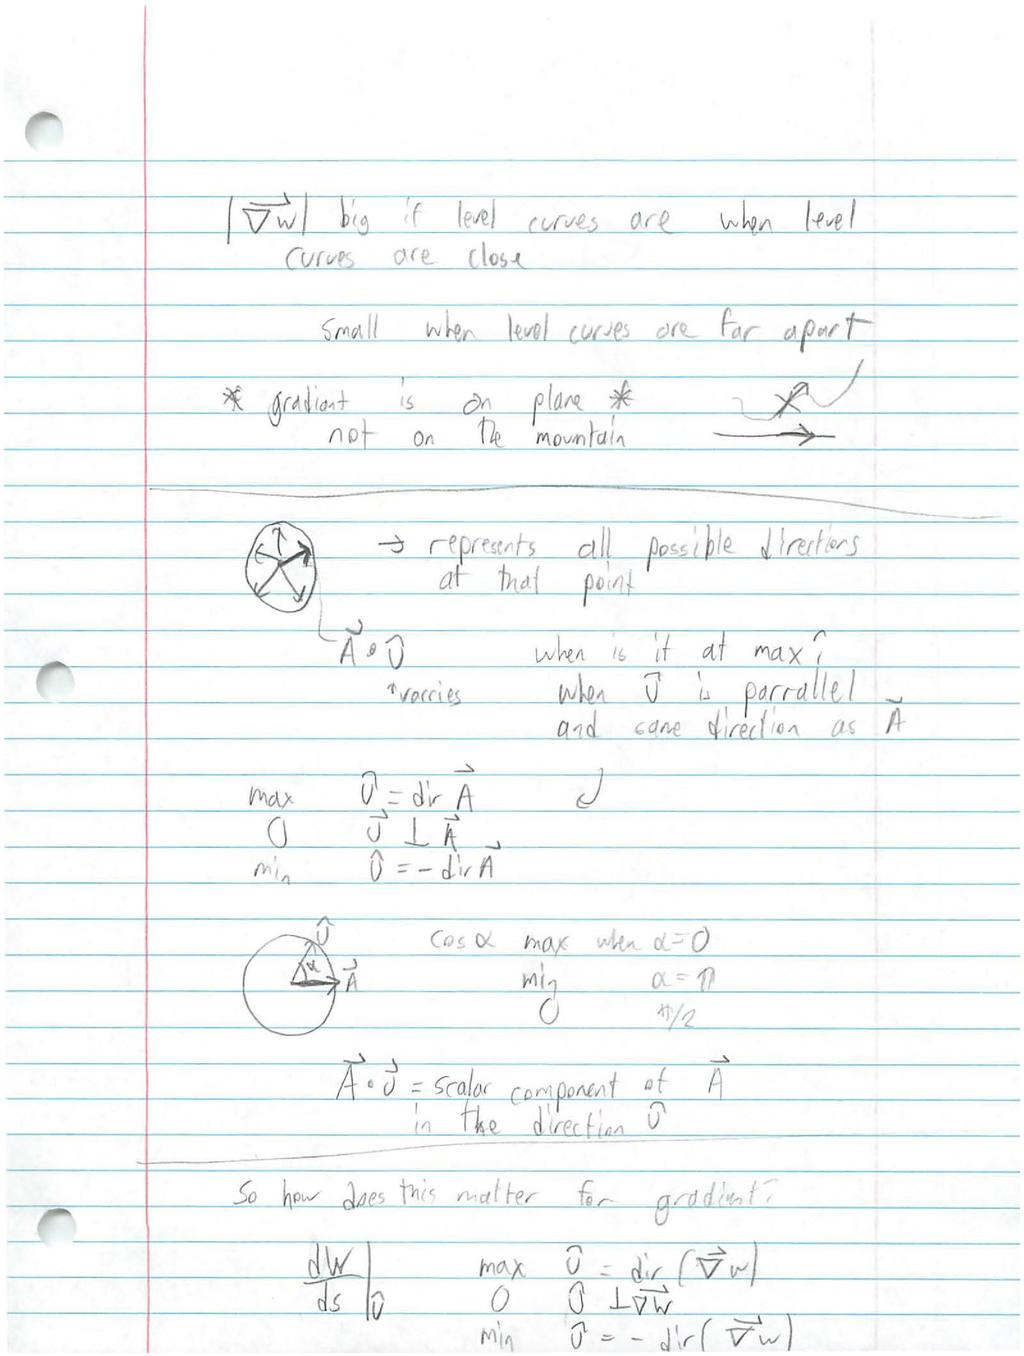 |∇⃗w| big if level curves are when level
curves are close
small when level curves are far apart
* gradient is on plane *
not on the mountain
→ represents all possible directions
at that point
A⃗ • Û when is it at max?
↑varries when Û is parrallel
and same direction as A⃗
max Û = dir A⃗
0 Û ⊥ A⃗
min Û = - dir A⃗
Û
α A⃗
cos α max when α = 0
min α = π
0 π/2
A⃗ • Û = scalar component of A⃗
in the direction Û
So how does this matter for gradient?
dw/ds|Û max Û = dir (∇⃗w)
0 Û ⊥ ∇⃗w
min Û = - dir (∇⃗w)